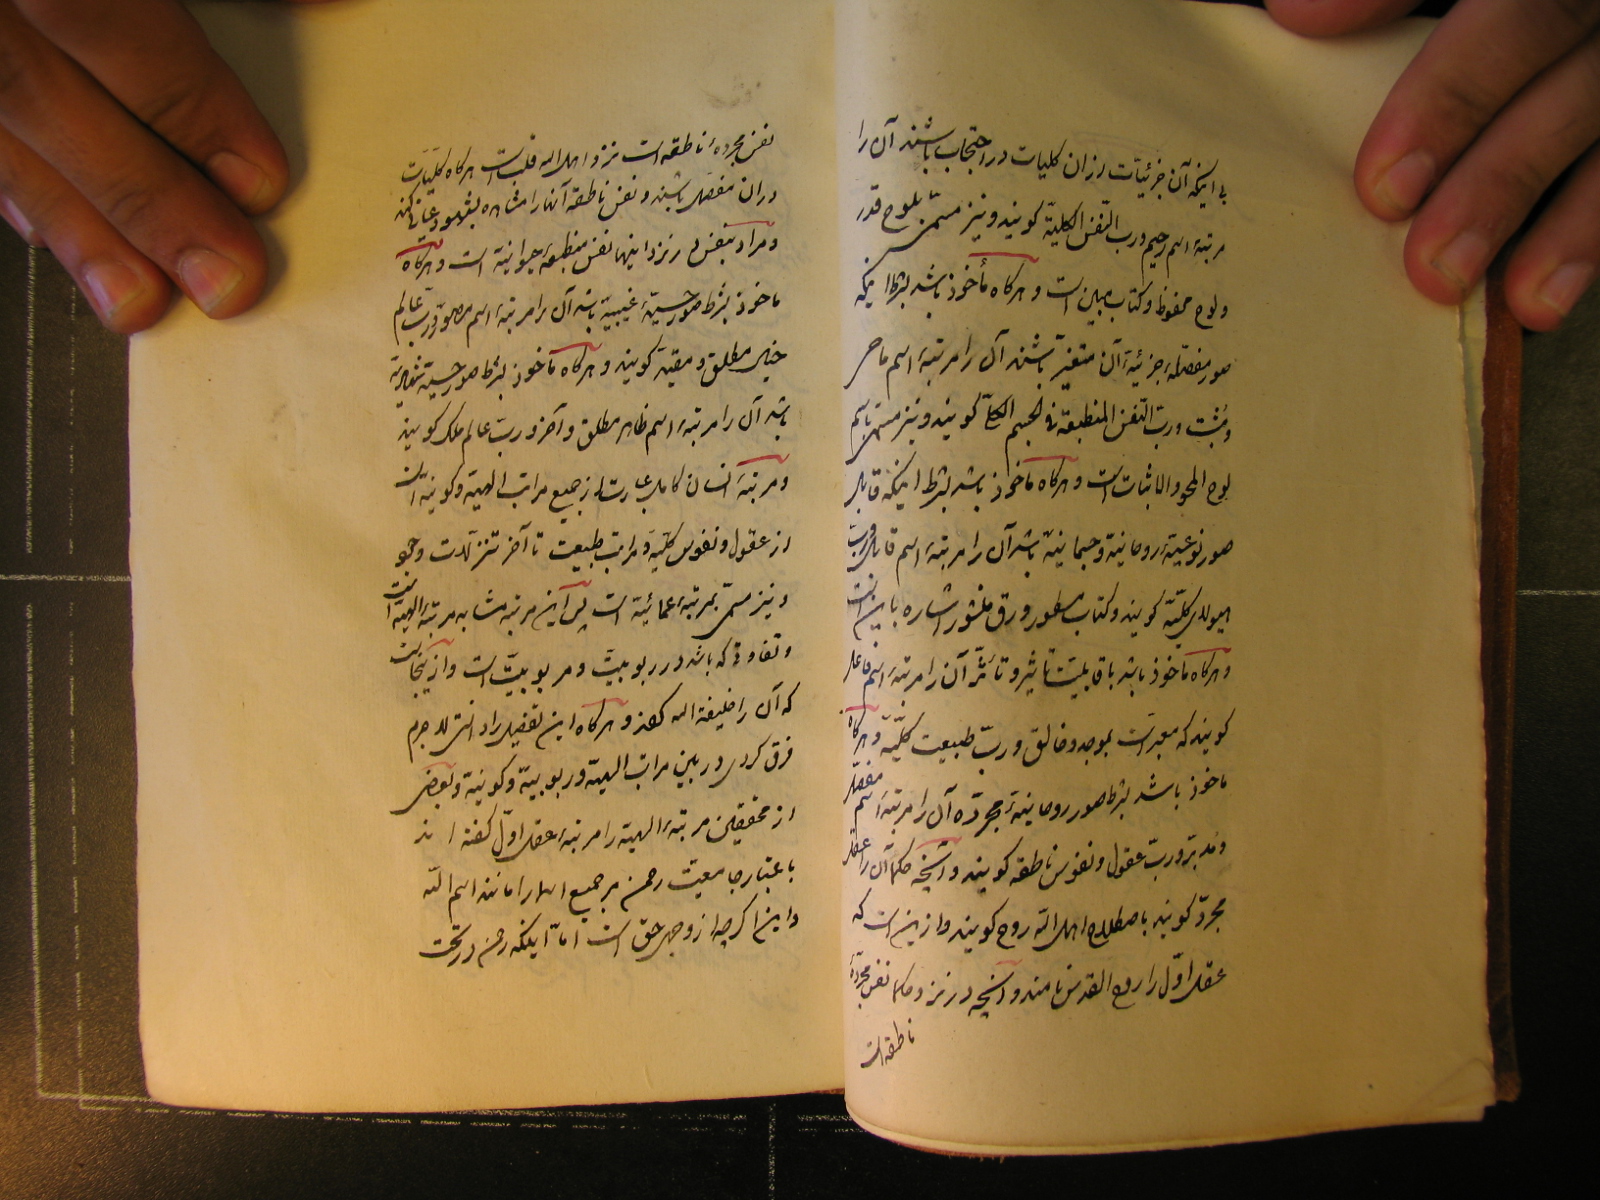 بی اینکه آن جزئیات از آن کلیات در احتجاب باشند آن را
مرتبهٔ اسم رحیم و رب النفس الکلیة گویند و نیز مسمی بلوح قدر
و لوح محفوظ و کتاب مبین است و هرگاه مأخوذ باشد بشرط اینکه
صور مفصلهٔ جزئیهٔ آن متغیر باشند آن را مرتبهٔ اسم ماحی
و مثبت و رب النفس المنطبعة فی الجسم الکلی گویند و نیز مسمی باسم
لوح المحو و الاثبات است و هرگاه مأخوذ باشد بشرط اینکه قابل
صور نوعیهٔ روحانیة و جسمانیة باشد آن را مرتبهٔ اسم قابل و رب
هیولای کلیّه گویند و کتاب مسطور و رق منشور اشاره باین است
و هرگاه مأخوذ باشد با قابلیت تأثیر و تأثّر آن را مرتبهٔ اسم فاعل
گویند که معبر است بموجد و خالق و ربّ طبیعت کلیّه و هرگاه
مأخوذ باشد بشرط صور روحانیهٔ مجردّه آن را مرتبهٔ اسم مفصّل
و مدبّر و ربّ عقول و نفوس ناطقه گویند و آنچه حکما آن را عقل
مجردّ گویند باصطلاح اهل الله روح گویند و از این است که
عقل اوّل را روح القدس نامند و آنچه در نزد حکما نفس مجردّهٔ
ناطقه است
نفس مجردهٔ ناطقه است نزد اهل الله قلب است هرگاه کلیّات
در آن مفصّل باشند و نفس ناطقه آنها را مشاهده بشهود عیانی کند
و مراد بنفس در نزد اینها نفس منطبعهٔ حیوانیة است و هرگاه
ماخوذ بشرط صور حسیّهٔ غیبیة باشد آن را مرتبهٔ اسم مصوّر و رب عالم
خیال مطلق و مقیّد گویند و هرگاه مأخوذ بشرط صور حسیة شهادیة
باشد آن را مرتبهٔ اسم ظاهر مطلق و آخر و ربّ عالم ملک گویند
و مرتبهٔ انسان کامل عبارت از جمیع مراتب الهیة و کونیة است
از عقول و نفوس کلیّة و مراتب طبیعت تا آخر تنزلات وجود
و نیز مسمّی بمرتبهٔ عمائیّة است پس این مرتبه مشابه مرتبهٔ الهیّة است
و تفاوتی که باشد در ربوبیت و مربوبیّت است و از اینجاست
که آن را خلیفة الله گفتند و هرگاه این تفصیل را دانستی لاجرم
فرق کردی در بین مراتب الهیّة و ربوبیّة و کونیّة و بعضی
از محققین مرتبهٔ الهیّة را مرتبهٔ عقل اوّل گفته اند
باعتبار جامعیت رحمن بر جمیع اسما را مانند اسم اللّه
و این اگرچه از وجهی حق است امّا اینکه رحمن در تحت